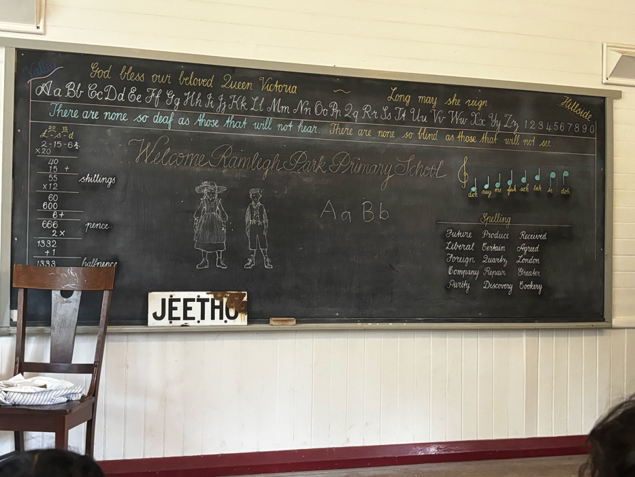 God bless our beloved Queen Victoria ~ Long may she reign
Valley
Hillside
Aa Bb Cc Dd Ee Ff Gg Hh Ii Jj Kk Ll Mm Nn Oo Pp Qq Rr Ss Tt Uu Vv Ww Xx Yy Zz 1 2 3 4 5 6 7 8 9 0
There are none so deaf as those that will not hear. There are none so blind as those that will not see
Welcome Ramlegh Park Primary School
£ - s - d
2 - 15 - 6½
× 20
40
15 +
55 shillings
× 12
60
600
6 +
666 pence
2 ×
1332
+ 1
1333 halfpence
Aa Bb
doh ray me fah soh lah te doh
Spelling
Future Produce Received
Liberal Certain Agreed
Foreign Quartz London
Company Repair Greater
Purity Discovery Cookery
JEETHO